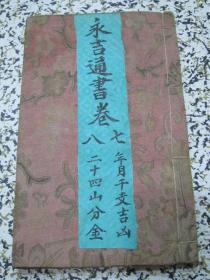 永吉通書卷
七 年月干支吉凶
八 二十四山分金